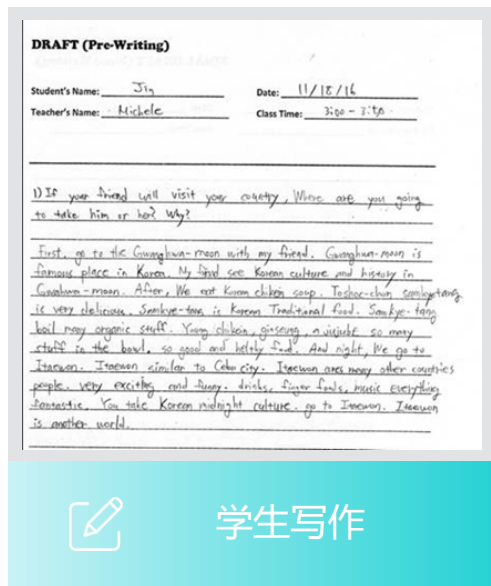 DRAFT (Pre-Writing)
Student's Name: Jin
Date: 11/18/16
Teacher's Name: Michele
Class Time: 3:00 -
1) If your friend will visit your country, Where are you going
to take him or her? Why?
First, go to the Gwanghwa-moon with my friend. Gwanghwa-moon is
famous place in Korea. My see Korean culture and history in
After, We eat Korean chiken soup. Toshoc-chon samkyetang
is very delicious. Samkye-tang is Korean Traditional food. Samkye-tang
boil many organic stuff. Young chiken, ginseung, a jujube so many
stuff in the bowl, so good and helthy food. And night, We go to
Itaewon. Itaewon similar to Cebu city. Itaewon many other countries
people. very exciting and funny. drinks, finger foods, music everything
fantastic. You take Korean midnight culture. go to Itaewon. Itaewon
is another world.
学生写作